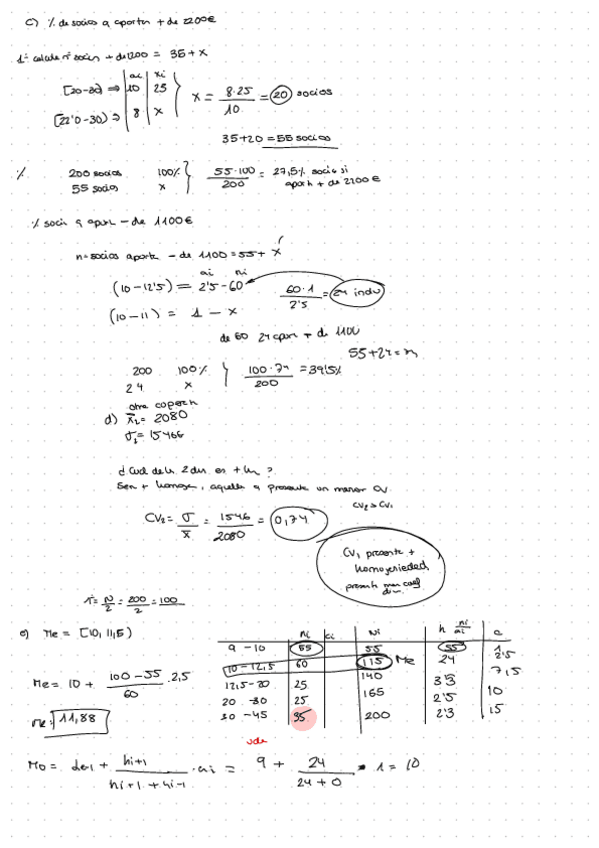 c) % de socios q aportan + de 2200€
1º calculo nº socios + de 1200 = 35 + x
ai xi
[20-30) ⇒ 10 25
[22'0-30) ⇒ 8 x
x = 8·25 / 10 = 20 socios
35+20 = 55 socios
% 200 socios 100%
55 socios x
55·100 / 200 = 27,5% socios si
aport + de 2200€
% socis q apor - de 1100€
nº socios aporta - de 1100 = 55 + x
ai ni
(10-12'5) = 2'5 - 60
60·1 / 2'5 = 24 indiv
(10-11) = 1 - x
de 60 24 apor + de 1100
55+24 = n
200 100%
24 x
100·79 / 200 = 39'5%
otra coperh
d) x̄₂ = 2080
σ₂ = 15466
¿Cual de ls 2 dis es + h ?
Sera + homoge, aquella q presente un menor CV
CV₂ > CV₁
CV₂ = σ / x̄ = 1546 / 2080 = 0,74
CV₁ presenta +
homogeneidad
i = N/2 = 200/2 = 100
e) Me = [10, 11,5)
ni ci Ni h ni/ai a
9 - 10 55 55 55 1
10 - 12,5 60 115 Me 24 2'5
12,5 - 20 25 140 3'3 7,5
20 - 30 25 165 2'5 10
30 - 45 35 200 2'3 15
Me = 10 + 100 - 55 / 60 · 2,5
Me = 11,88
Mo = li-1 + hi+1 / hi+1 + hi-1 · ai = 9 + 24 / 24 + 0 · 1 = 10